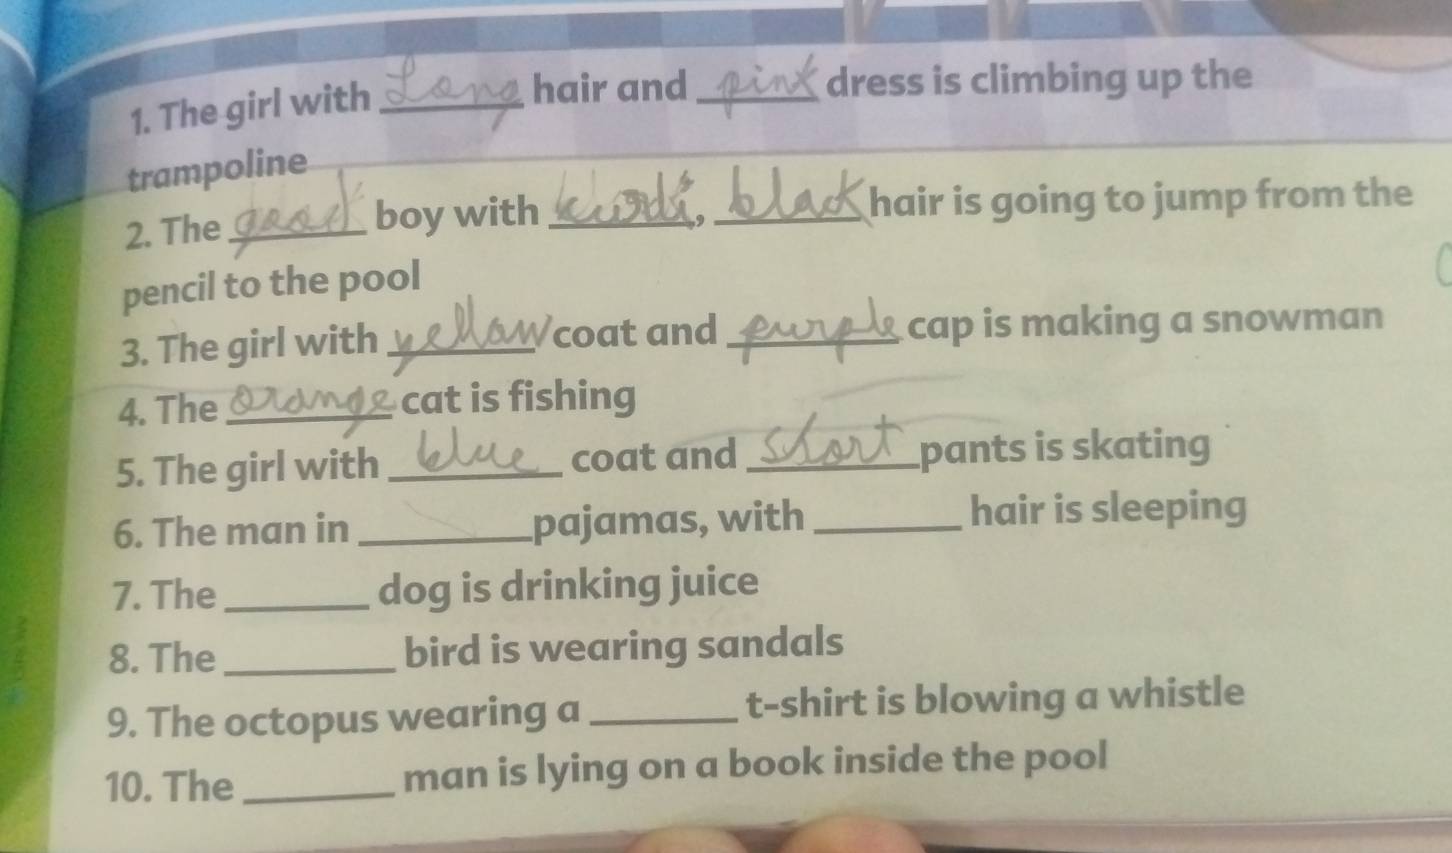 1. The girl with Long hair and pink dress is climbing up the
trampoline
2. The good boy with , black hair is going to jump from the
pencil to the pool
3. The girl with yellow coat and purple cap is making a snowman
4. The orange cat is fishing
5. The girl with blue coat and short pants is skating
6. The man in ________ pajamas, with ________ hair is sleeping
7. The ________ dog is drinking juice
8. The ________ bird is wearing sandals
9. The octopus wearing a ________ t-shirt is blowing a whistle
10. The ________ man is lying on a book inside the pool